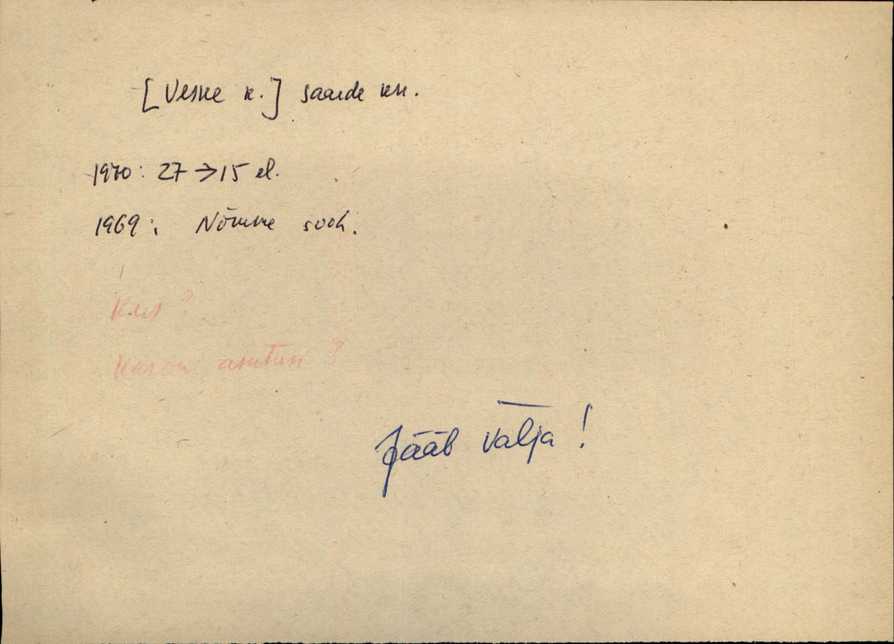 [Veske k.] Saarde khn.
1970: 27 → 15 el.
1969: Nõmme sooh.
Kus?
Kus on asutus?
Jääb välja!